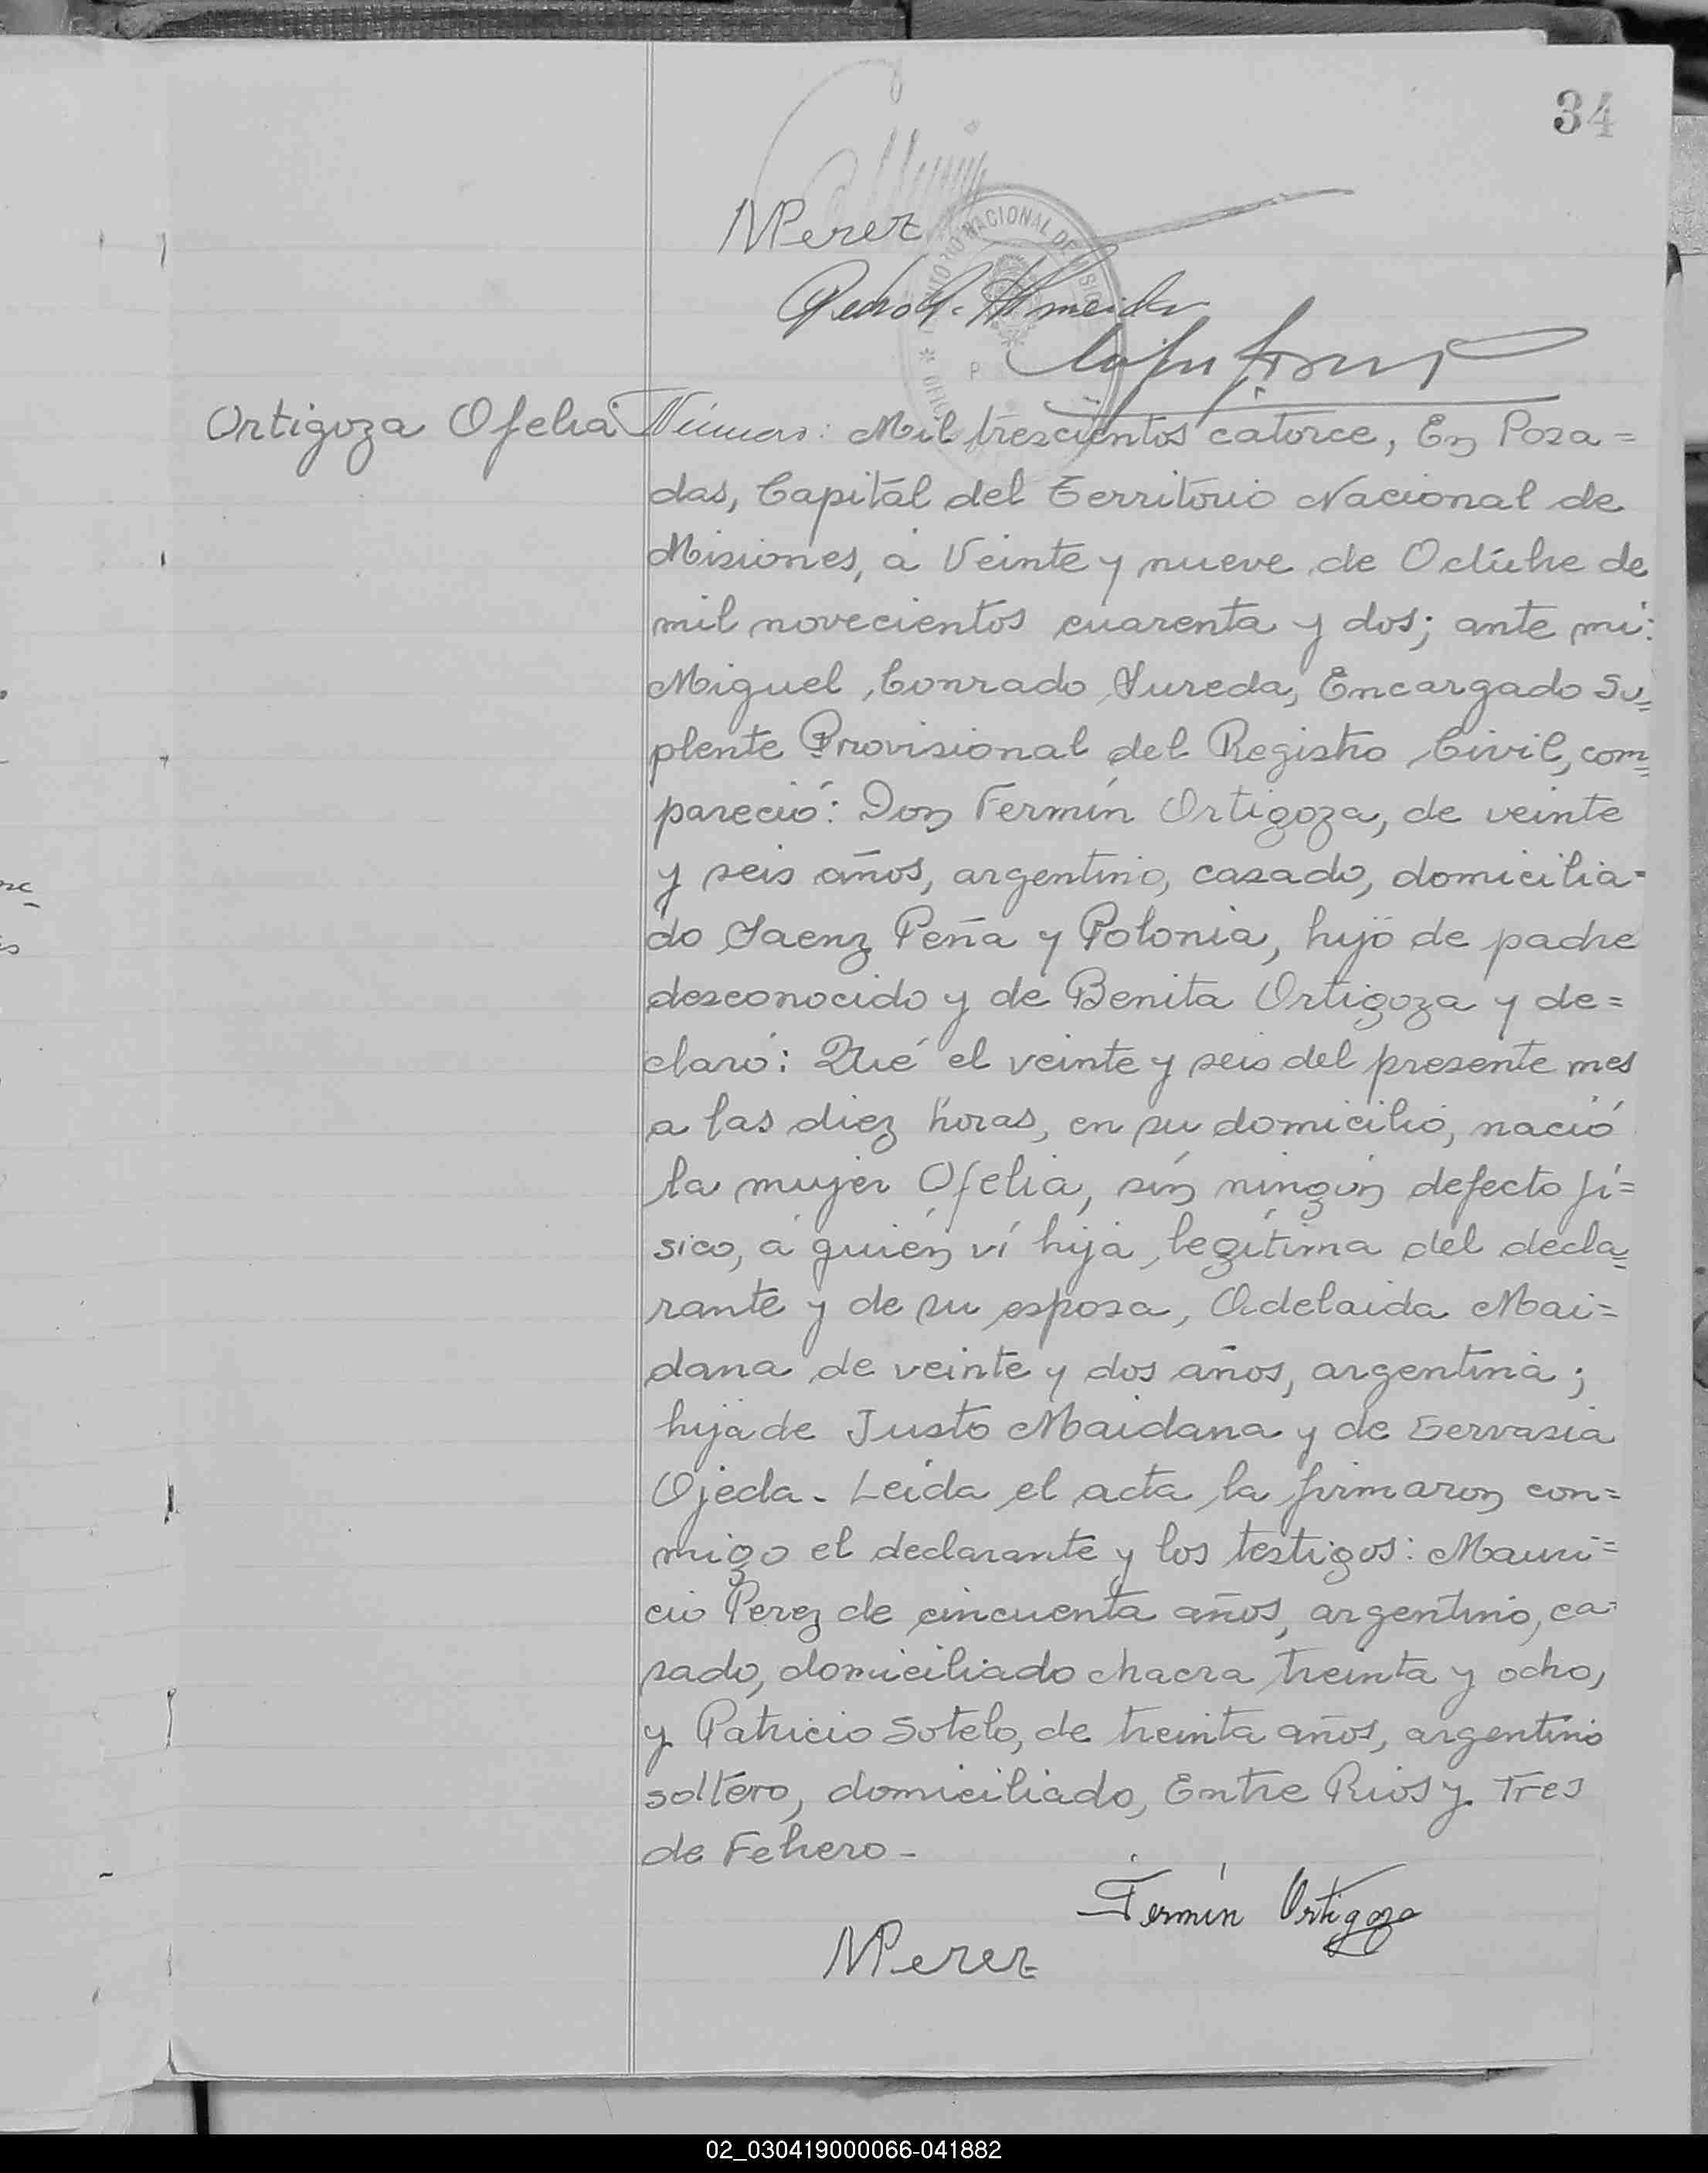 34
MPerez
Pedro A. Almeida
TERRITORIO NACIONAL DE MISIO
Ortigoza Ofelia
Número: Mil trescientos catorce, En Posa=
das, Capital del Territorio Nacional de
Misiones, á Veinte y nueve de Octubre de
mil novecientos cuarenta y dos; ante mi:
Miguel Conrado Sureda, Encargado Su=
plente Provisional del Registro Civil, com=
pareció: Don Fermín Ortigoza, de veinte
y seis años, argentino, casado, domicilia=
do Saenz Peña y Polonia, hijo de padre
desconocido y de Benita Ortigoza y de=
claró: Qué el veinte y seis del presente mes
a las diez horas, en su domicilio, nació
la mujer Ofelia, sín ningún defecto fí=
sico, á quién ví hija legítima del decla=
rante y de su esposa, Adelaida Mai=
dana de veinte y dos años, argentina;
hija de Justo Maidana y de Gervasia
Ojeda. Leida el acta la firmaron con=
migo el declarante y los testigos: Mauri=
cio Perez de cincuenta años, argentino, ca=
sado, domiciliado chacra treinta y ocho,
y Patricio Sotelo, de treinta años, argentino
soltero, domiciliado, Entre Rios y Tres
de Febrero-
Fermín Ortigoza
MPerez
02_030419000066-041882